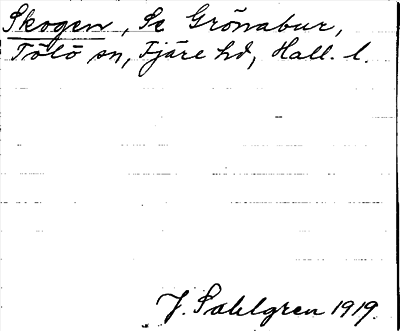 Skogen, Se Grönabur,
Tölö sn, Fjäre hd, Hall. l.
J. Sahlgren 1919.